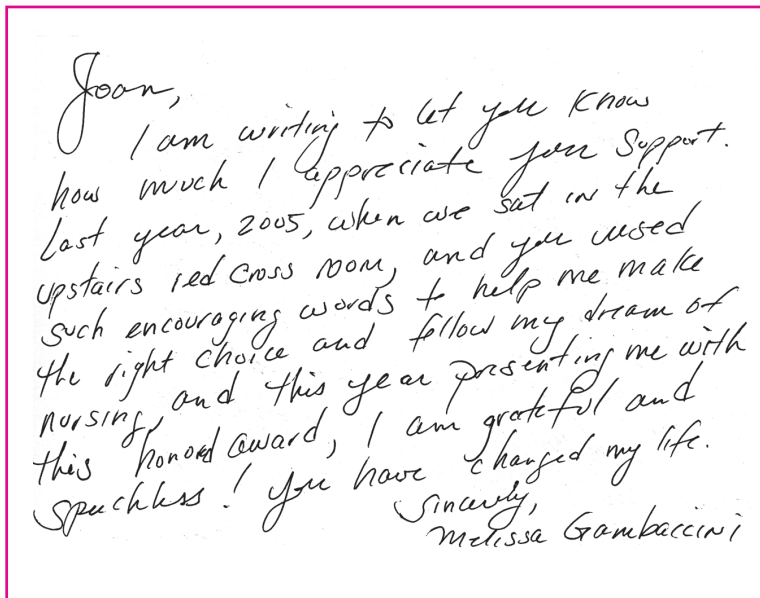 Joan,
I am writing to let you know
how much I appreciate your support.
Last year, 2005, when we sat in the
upstairs red cross room, and you used
such encouraging words to help me make
the right choice and follow my dream of
nursing, and this year presenting me with
this honored award, I am grateful and
speechless! You have changed my life.
Sincerely,
Melissa Gambaccini